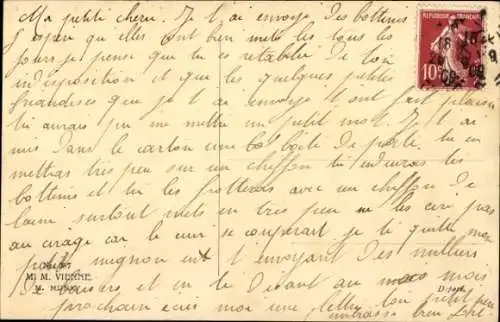 Ma petite cherie. Je t ai envoyé des bottines
J espere qu elles ont bien mets les tous les
jours je pense que tu es rétablie de ton
indisposition et que les quelques petites
friandises que je t ai envoyé t ont fait plaisir
tu aurais pu me mettre un petit mot. Je t ai
mis dans le carton une boîte de pâte, tu en
mettras tres peu sur un chiffon tu enduiras les
bottines et tu les frotteras avec un chiffon de
laine surtout mets en tres peu ne les cire pas
au cirage car le cuir se couperait je te quitte mon
petit mignon en t envoyant des milliers
de baisers et en te disant au mois
prochain ecris moi une lettre ton petit
embrasse bien
REPUBLIQUE FRANÇAISE
10
M. M. VIENNE
M. MUNK